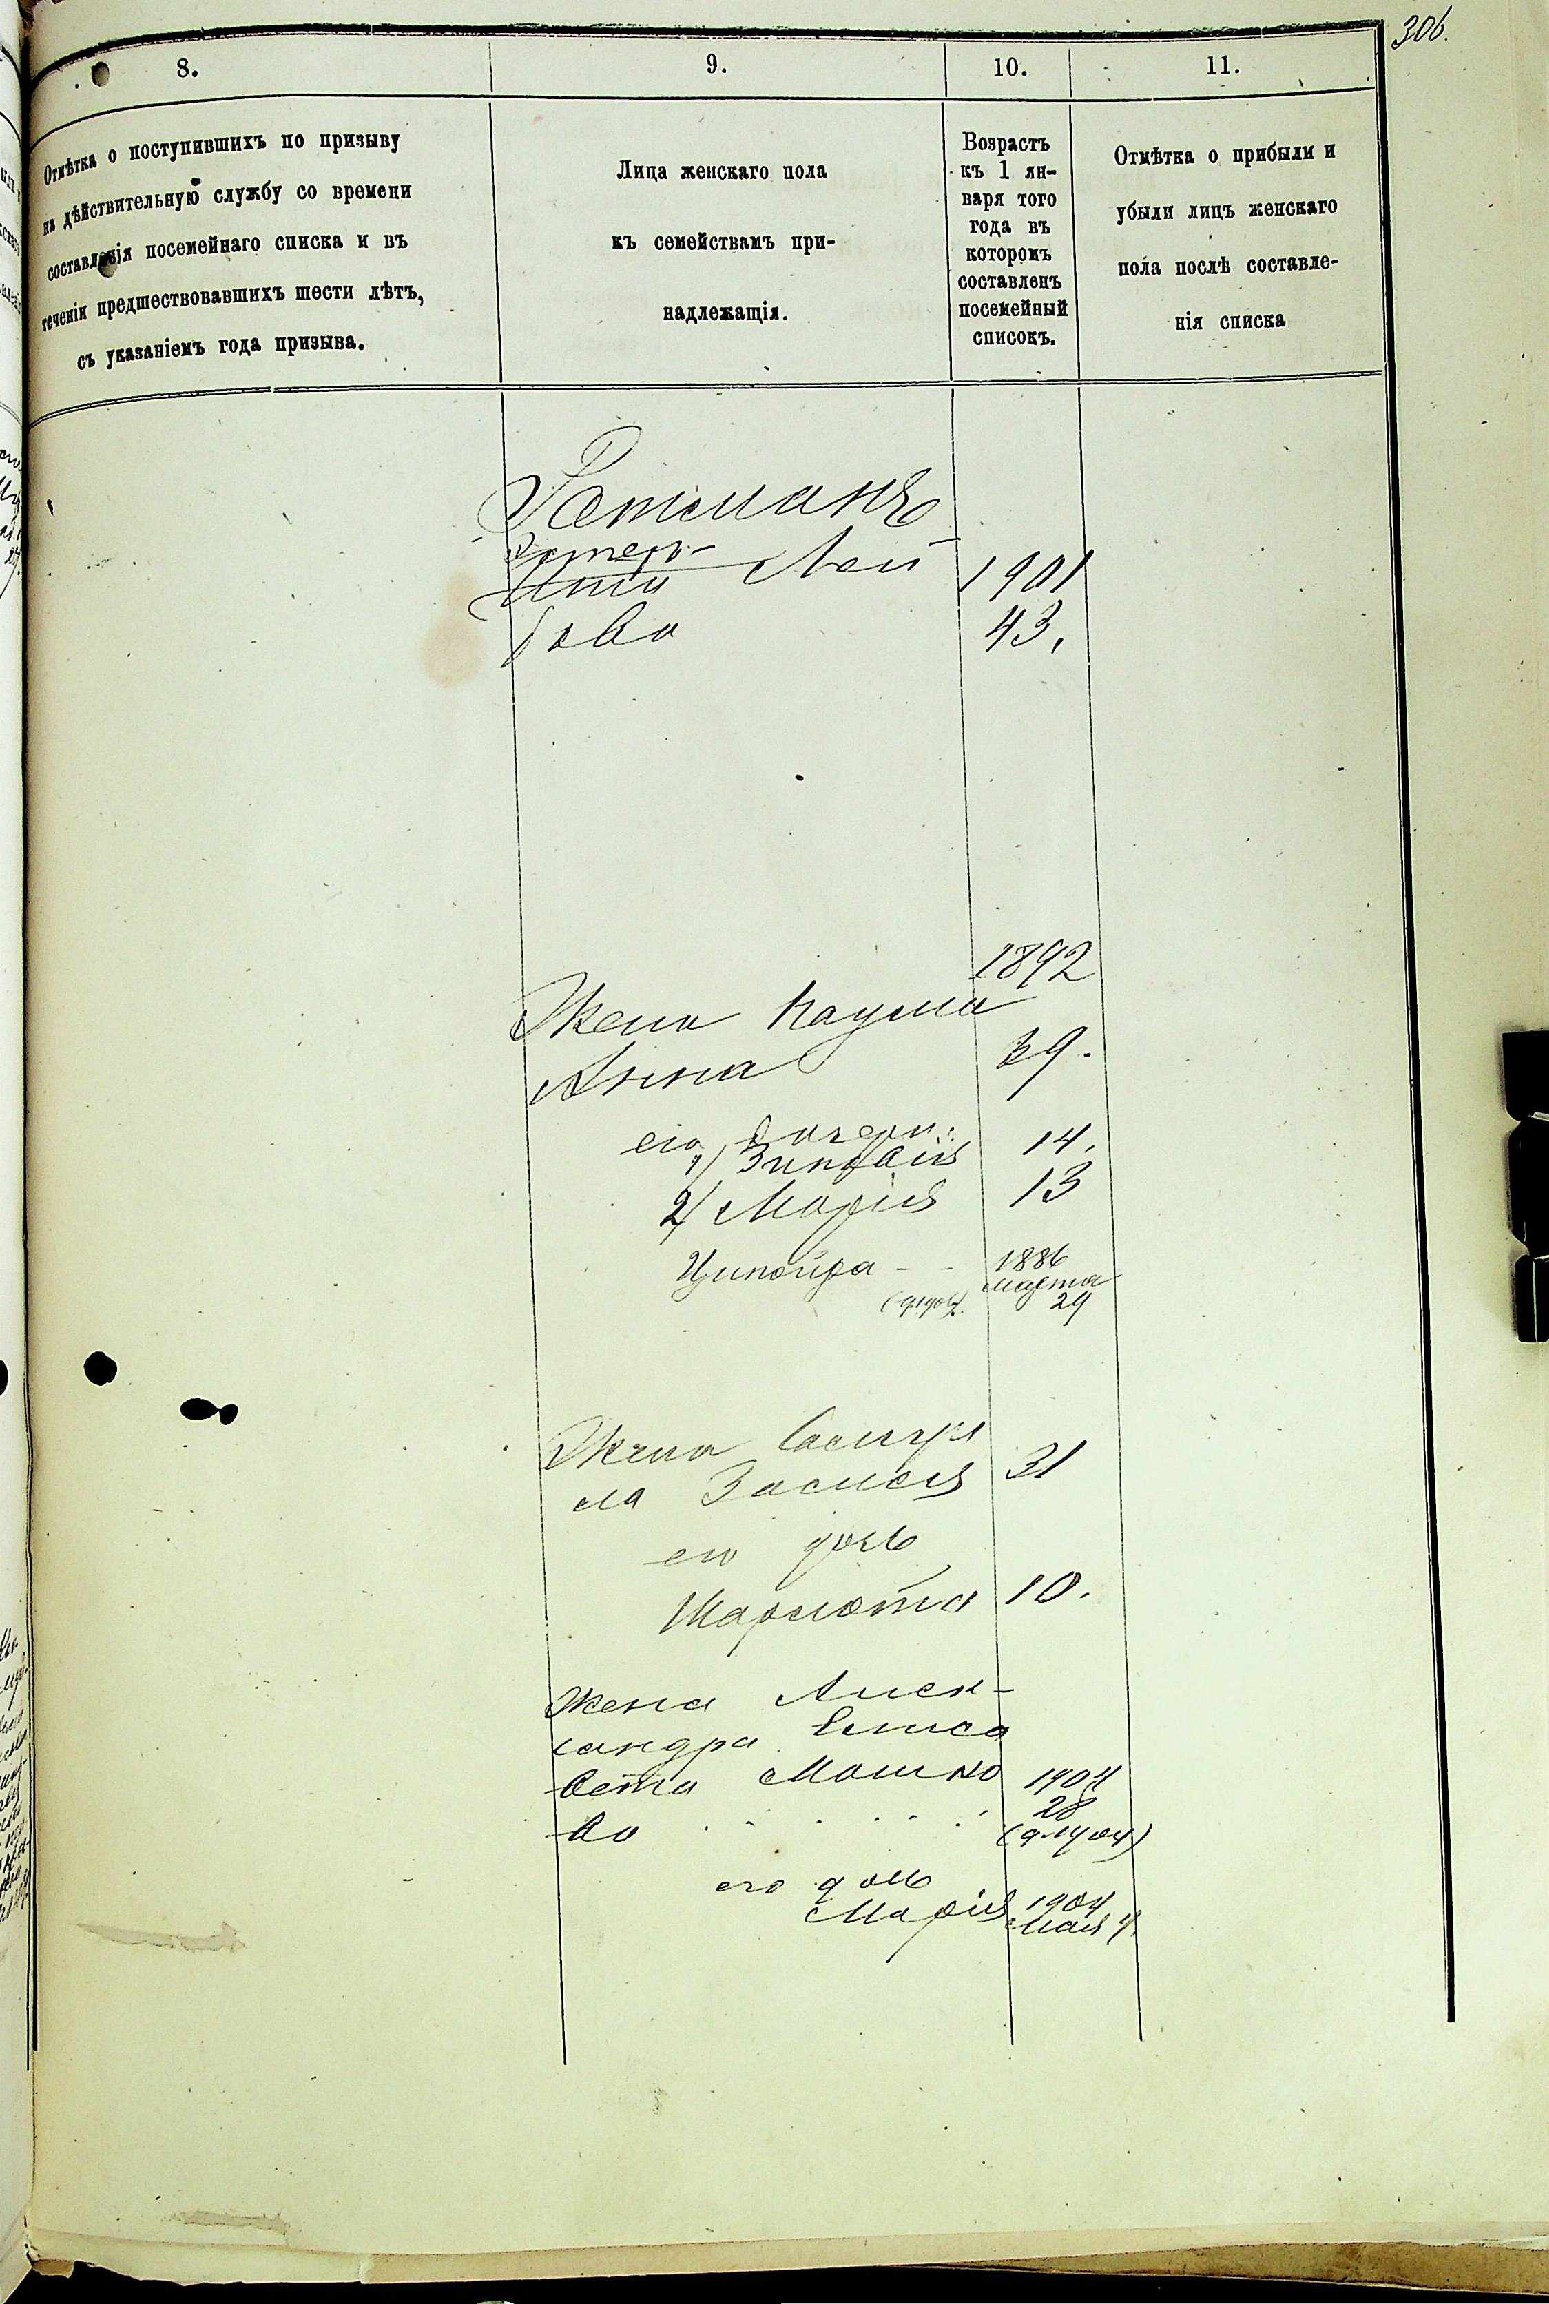 306.
8.
9.
10.
11.
Отмѣтка о поступившихъ по призыву
на дѣйствительную службу со времени
составленія посемейнаго списка и въ
теченіи предшествовавшихъ шести лѣтъ,
съ указаніемъ года призыва.
Лица женскаго пола
къ семействамъ при-
надлежащія.
Возрастъ
къ 1 ян-
варя того
года въ
которомъ
составленъ
посемейный
списокъ.
Отмѣтка о прибыли и
убыли лицъ женскаго
пола послѣ составле-
нія списка
1901
43.
1892
Жена Наума
Анна 39.
его дочери:
1/ Зинаида 14.
2/ Марія 13
Ципойра - - 1886
марта
29
Жена Самуи
ла 31
его дочь
Шарлота 10.
Жена Алек-
сандра Елиса
вета Машко 1904
ва 28
его дочь
Марія 1904
Мая 4.